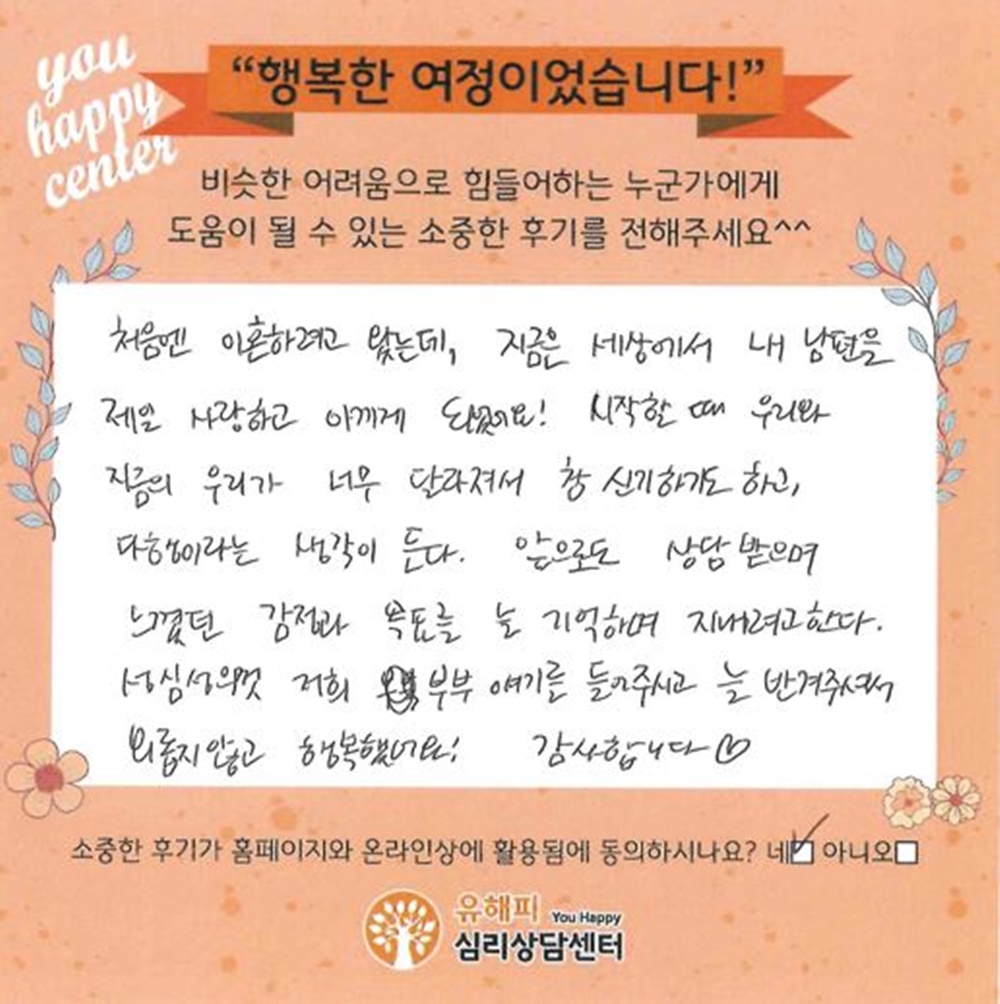 you
happy
center
“행복한 여정이었습니다!”
비슷한 어려움으로 힘들어하는 누군가에게
도움이 될 수 있는 소중한 후기를 전해주세요^^
처음엔 이혼하려고 왔는데, 지금은 세상에서 내 남편을
제일 사랑하고 아끼게 되었어요! 시작할 때 우리와
지금의 우리가 너무 달라져서 참 신기하기도 하고,
다행이라는 생각이 든다. 앞으로도 상담 받으며
느꼈던 감정과 목표를 늘 기억하며 지내려고한다.
성심성의껏 저희 부부 얘기를 들어주시고 늘 반겨주셔서
외롭지않고 행복했어요! 감사합니다♡
소중한 후기가 홈페이지와 온라인상에 활용됨에 동의하시나요? 네☑ 아니오☐
유해피 You Happy
심리상담센터